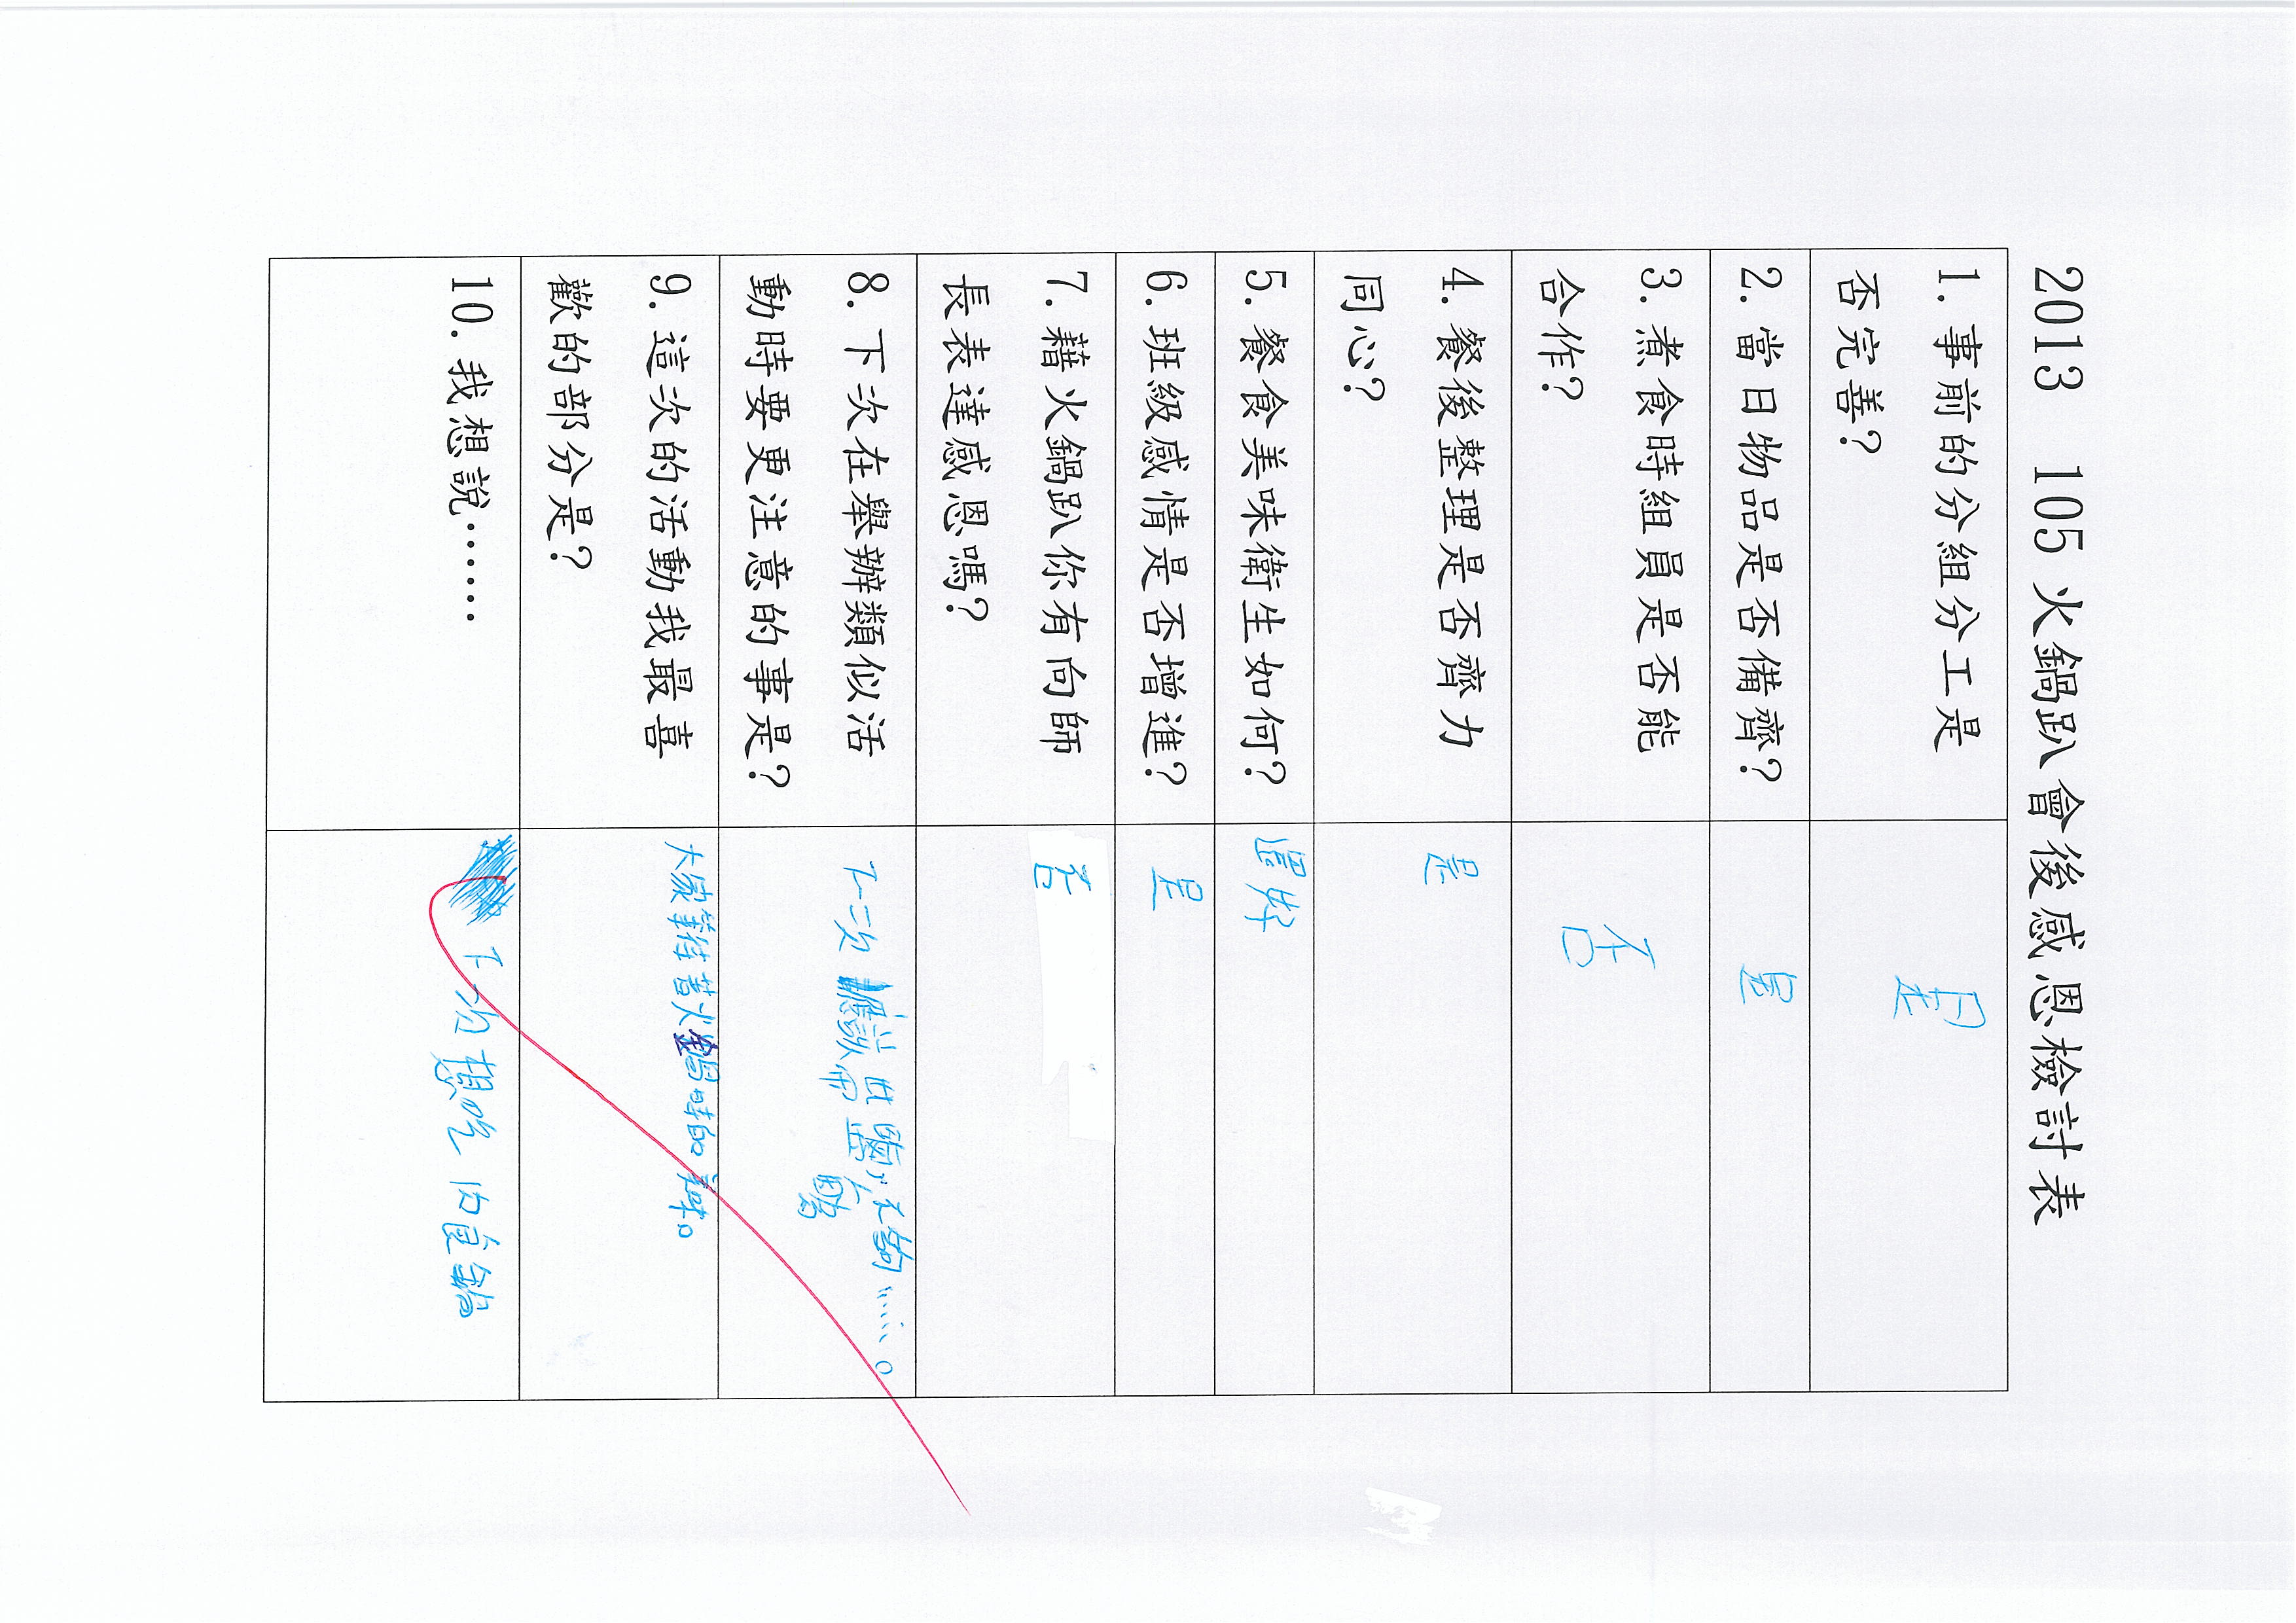 2013 105火鍋趴會後感恩檢討表
1. 事前的分組分工是
否完善?
是
2. 當日物品是否備齊?
是
3. 煮食時組員是否能
合作?
否
4. 餐後整理是否齊力
同心?
是
5. 餐食美味衛生如何?
還好
6. 班級感情是否增進?
是
7. 藉火鍋趴你有向師
長表達感恩嗎?
否
8. 下次在舉辦類似活
動時要更注意的事是?
下次應該
不夠……。
9. 這次的活動我最喜
歡的部分是?
大家等待著火鍋時的
10. 我想說……
下次想吃